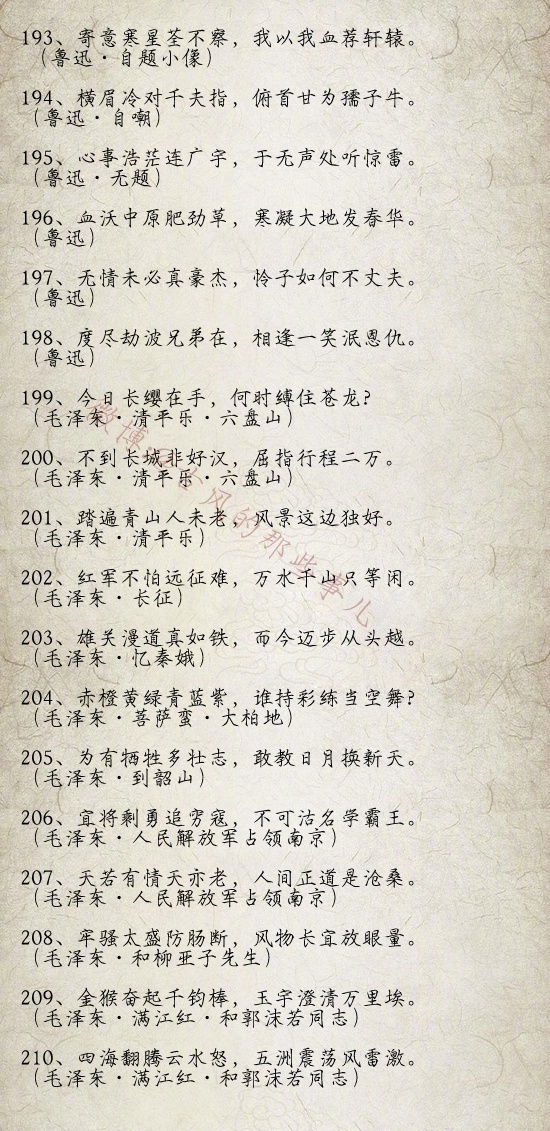 193、寄意寒星荃不察，我以我血荐轩辕。
（鲁迅·自题小像）
194、横眉冷对千夫指，俯首甘为孺子牛。
（鲁迅·自嘲）
195、心事浩茫连广宇，于无声处听惊雷。
（鲁迅·无题）
196、血沃中原肥劲草，寒凝大地发春华。
（鲁迅）
197、无情未必真豪杰，怜子如何不丈夫。
（鲁迅）
198、度尽劫波兄弟在，相逢一笑泯恩仇。
（鲁迅）
199、今日长缨在手，何时缚住苍龙?
（毛泽东·清平乐·六盘山）
200、不到长城非好汉，屈指行程二万。
（毛泽东·清平乐·六盘山）
201、踏遍青山人未老，风景这边独好。
（毛泽东·清平乐）
202、红军不怕远征难，万水千山只等闲。
（毛泽东·长征）
203、雄关漫道真如铁，而今迈步从头越。
（毛泽东·忆秦娥）
204、赤橙黄绿青蓝紫，谁持彩练当空舞?
（毛泽东·菩萨蛮·大柏地）
205、为有牺牲多壮志，敢教日月换新天。
（毛泽东·到韶山）
206、宜将剩勇追穷寇，不可沽名学霸王。
（毛泽东·人民解放军占领南京）
207、天若有情天亦老，人间正道是沧桑。
（毛泽东·人民解放军占领南京）
208、牢骚太盛防肠断，风物长宜放眼量。
（毛泽东·和柳亚子先生）
209、金猴奋起千钧棒，玉宇澄清万里埃。
（毛泽东·满江红·和郭沫若同志）
210、四海翻腾云水怒，五洲震荡风雷激。
（毛泽东·满江红·和郭沫若同志）